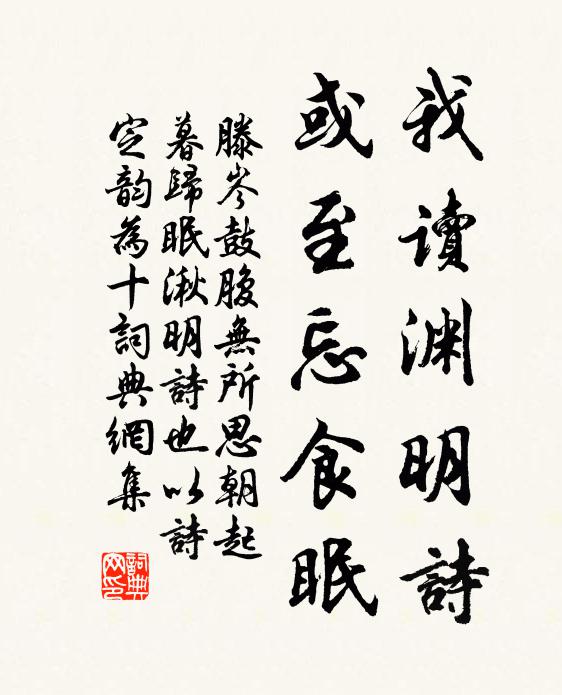 我讀淵明詩
或至忘食眠
滕岑鼓腹無所思朝起
暮歸眠湫明詩也以詩
定韵為十詞典網集
詞典網印